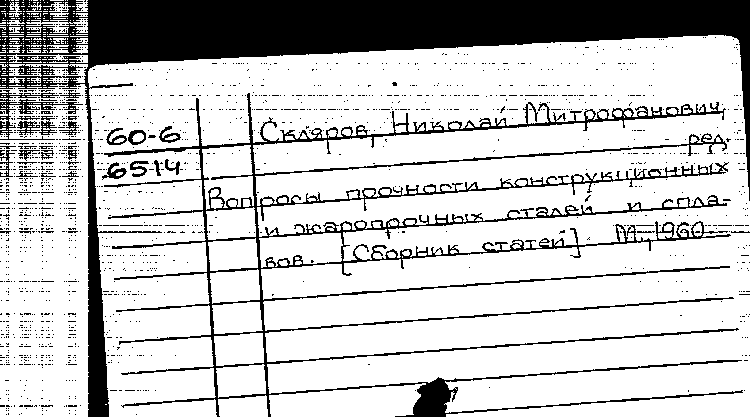 60-6
6514
Скляров, Николай Митрофанович,
ред.
Вопросы прочности конструкционных
и жаропрочных сталей и спла-
вов. [Сборник статей]. М., 1960.